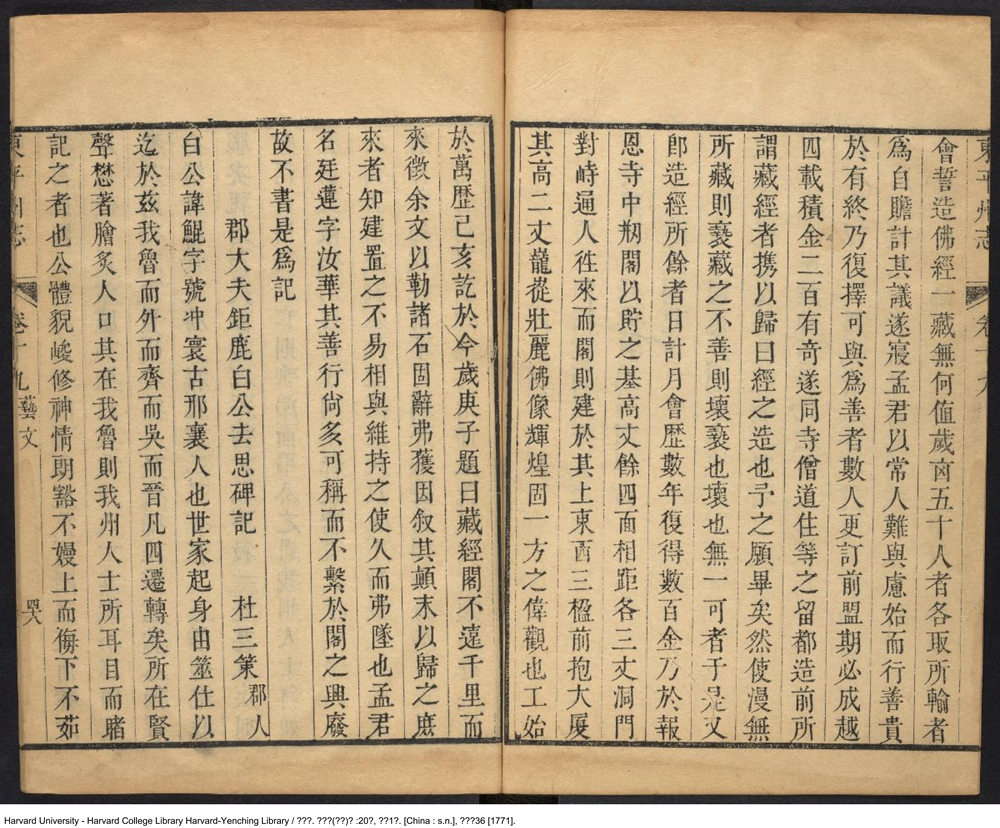 東平州志 卷十九
會誓造佛經一藏無何值歲卤五十人者各取所輸者
爲自贍計其議遂寢孟君以常人難與慮始而行善貴
於有終乃復擇可與爲善者數人更訂前盟期必成越
四載積金二百有奇遂同寺僧道住等之留都造前所
謂藏經者携以歸曰經之造也予之願畢矣然使漫無
所藏則褻藏之不善則壞褻也壞也無一可者于是又
卽造經所餘者日計月會歷數年復得數百金乃於報
恩寺中剏閣以貯之基高丈餘四面相距各三丈洞門
對峙通人徃來而閣則建於其上東西三楹前抱大廈
其高二丈巃嵸壯麗佛像輝煌固一方之偉觀也工始
於萬歷己亥訖於今歲庚子題曰藏經閣不遠千里而
來徵余文以勒諸石固辭弗獲因叙其顛末以歸之庶
來者知建置之不易相與維持之使久而弗墜也孟君
名廷蓮字汝華其善行尙多可稱而不繫於閣之興廢
故不書是爲記
郡大夫鉅鹿白公去思碑記 杜三策 郡人
白公諱鯤字號冲寰古邢襄人也世家起身由筮仕以
迄於兹我魯而外而齊而吳而晉凡四遷轉矣所在賢
聲懋著膾炙人口其在我魯則我州人士所耳目而睹
記之者也公體貌峻修神情朗豁不嫚上而侮下不茹
東平州志 卷十九 藝文 四八